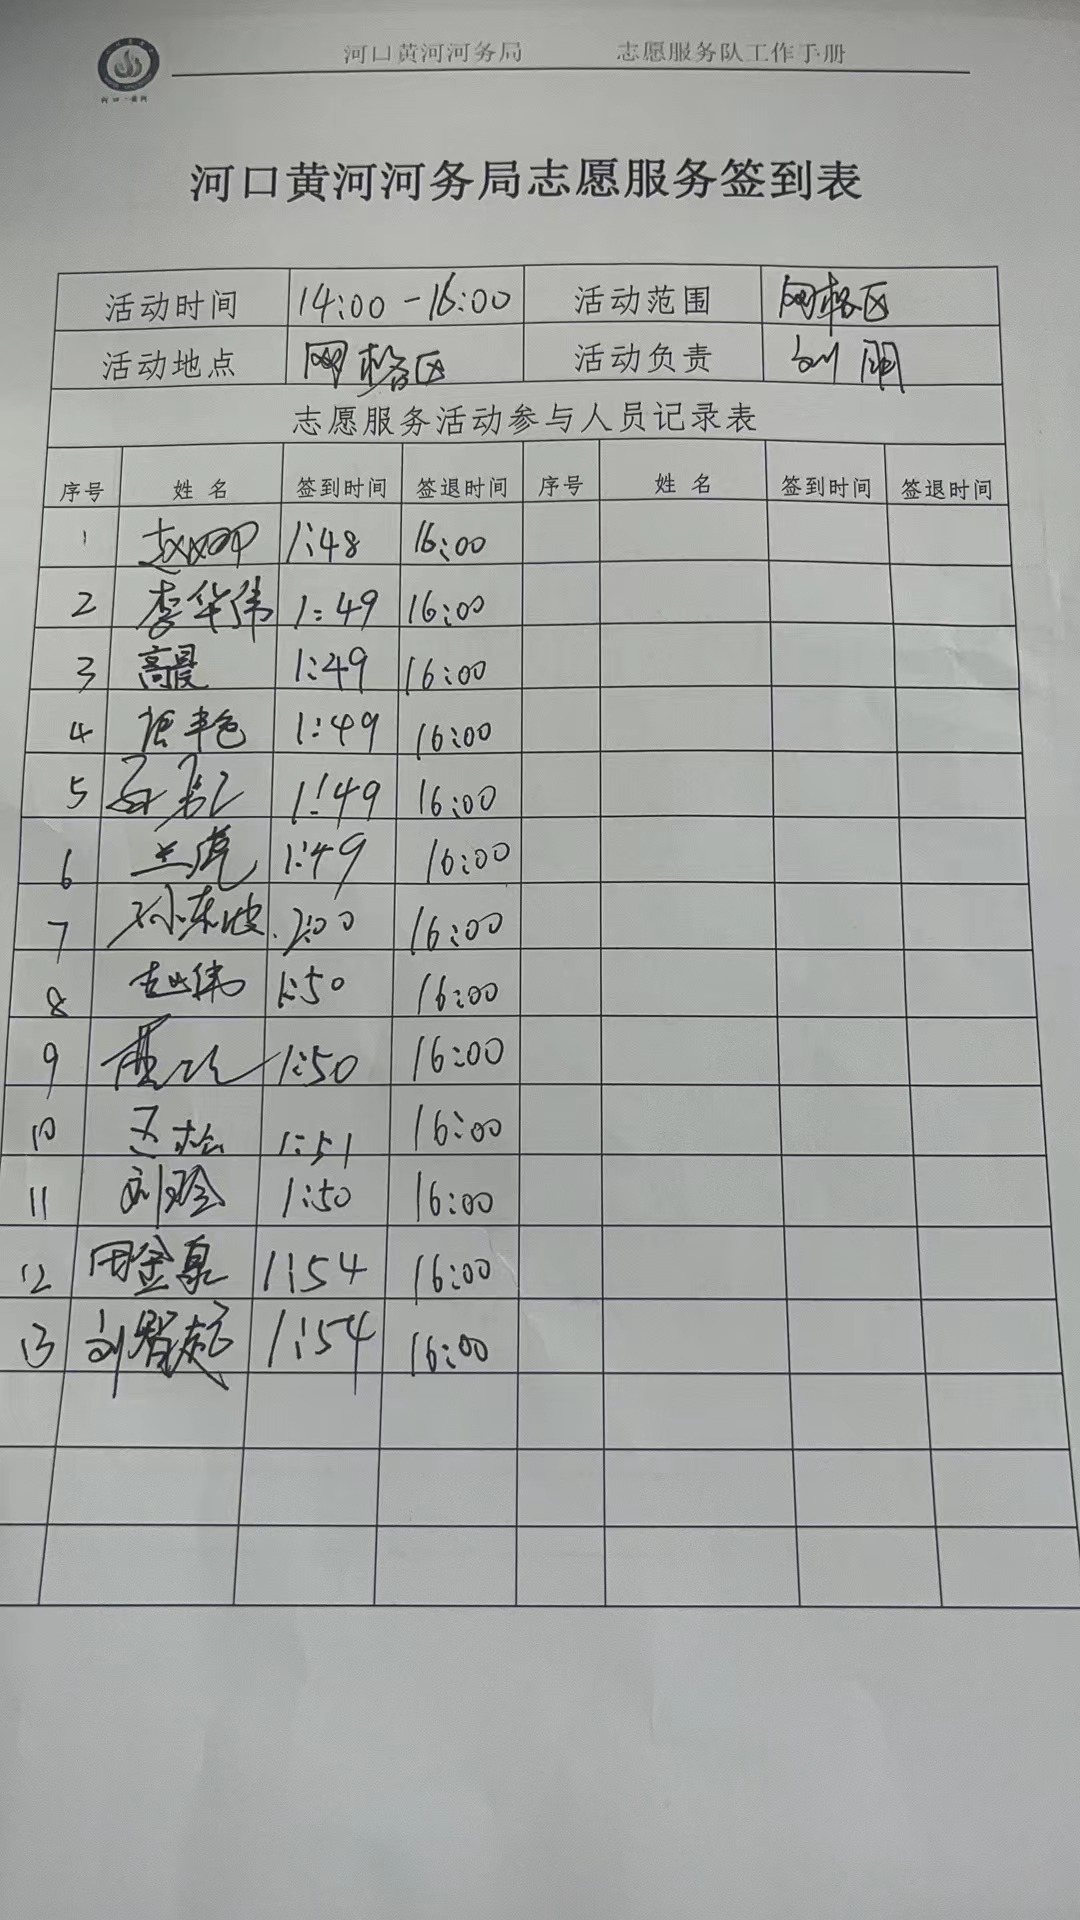 河口·黄河
河口黄河河务局 志愿服务队工作手册
河口黄河河务局志愿服务签到表
活动时间 14:00-16:00 活动范围 网格区
活动地点 网格区 活动负责 刘明
志愿服务活动参与人员记录表
序号 姓名 签到时间 签退时间 序号 姓名 签到时间 签退时间
1 1:48 16:00
2 李华伟 1:49 16:00
3 高晨 1:49 16:00
4 1:49 16:00
5 1:49 16:00
6 兰虎 1:49 16:00
7 孙东波 2:00 16:00
8 赵伟 1:50 16:00
9 1:50 16:00
10 1:51 16:00
11 刘玲 1:50 16:00
12 田金泉 1:54 16:00
13 刘智超 1:54 16:00